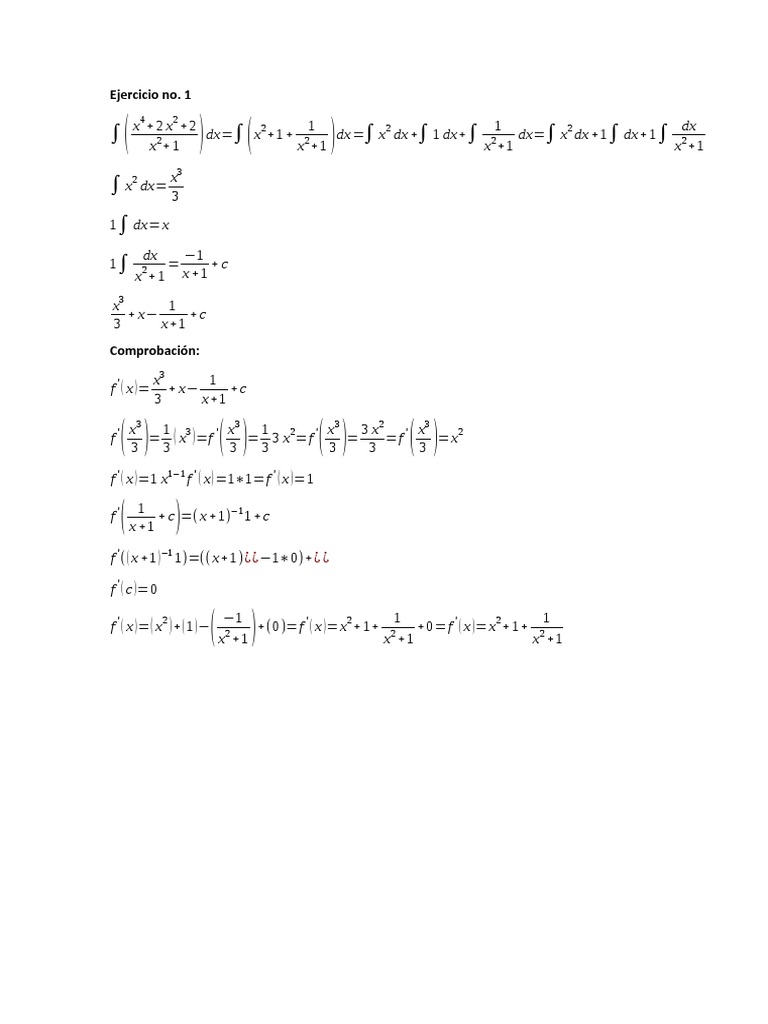 Ejercicio no. 1
∫((x⁴+2x²+2)/(x²+1))dx=∫(x²+1+1/(x²+1))dx=∫x²dx+∫1dx+∫1/(x²+1)dx=∫x²dx+1∫dx+1∫dx/(x²+1)
∫x²dx=x³/3
1∫dx=x
1∫dx/(x²+1)=−1/(x+1)+c
x³/3+x−1/(x+1)+c
Comprobación:
f'(x)=x³/3+x−1/(x+1)+c
f'(x³/3)=1/3(x³)=f'(x³/3)=1/3 3x²=f'(x³/3)=3x²/3=f'(x³/3)=x²
f'(x)=1x¹⁻¹f'(x)=1∗1=f'(x)=1
f'(1/(x+1)+c)=(x+1)⁻¹1+c
f'((x+1)⁻¹1)=((x+1)¿¿−1∗0)+¿¿
f'(c)=0
f'(x)=(x²)+(1)−(−1/(x²+1))+(0)=f'(x)=x²+1+1/(x²+1)+0=f'(x)=x²+1+1/(x²+1)